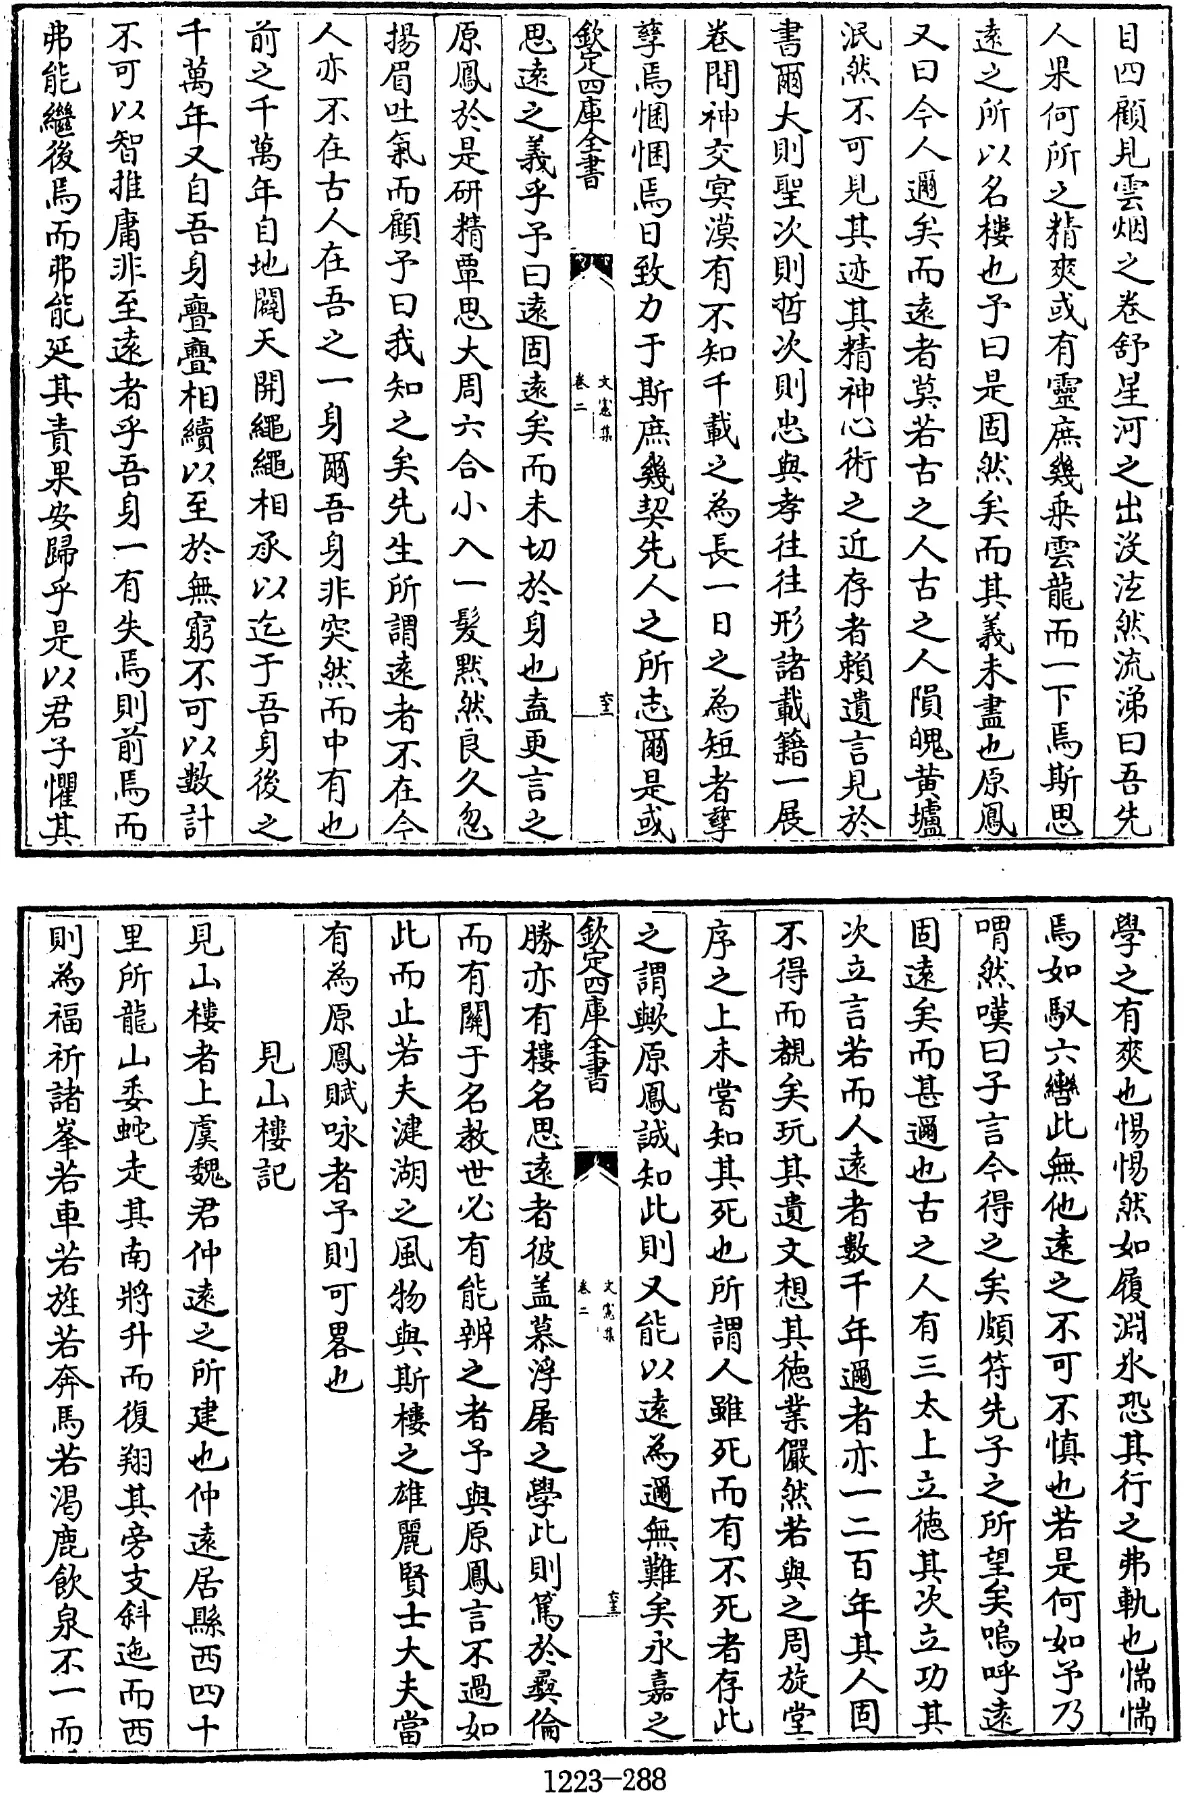 目四顧見雲烟之卷舒星河之出沒泫然流涕曰吾先
人果何所之精爽或有靈庶幾乗雲龍而一下焉斯思
遠之所以名樓也予曰是固然矣而其義未盡也原鳳
又曰今人邇矣而遠者莫若古之人古之人隕魄黄壚
泯然不可見其迹其精神心術之近存者賴遺言見於
書爾大則聖次則哲次則忠與孝往往形諸載籍一展
卷間神交㝠漠有不知千載之為長一日之為短者孳
孳焉悃悃焉日致力于斯庶幾契先人之所志爾是或
欽定四庫全書
文憲集
卷二
思遠之義乎予曰遠固遠矣而未切於身也盍更言之
原鳳於是研精覃思大周六合小入一髮黙然良久忽
揚眉吐氣而顧予曰我知之矣先生所謂遠者不在今
人亦不在古人在吾之一身爾吾身非突然而中有也
前之千萬年自地闢天開繩繩相承以迄于吾身後之
千萬年又自吾身亹亹相續以至於無窮不可以數計
不可以智推庸非至遠者乎吾身一有失焉則前焉而
弗能繼後焉而弗能延其責果安歸乎是以君子懼其
學之有爽也惕惕然如履淵氷恐其行之弗軌也惴惴
焉如馭六轡此無他遠之不可不慎也若是何如予乃
喟然嘆曰子言今得之矣頗符先子之所望矣嗚呼遠
固遠矣而甚邇也古之人有三太上立徳其次立功其
次立言若而人遠者數千年邇者亦一二百年其人固
不得而覩矣玩其遺文想其徳業儼然若與之周旋堂
序之上未嘗知其死也所謂人雖死而有不死者存此
之謂歟原鳳誠知此則又能以遠為邇無難矣永嘉之
欽定四庫全書
文憲集
卷二
勝亦有樓名思遠者彼盖慕浮屠之學此則篤於彝倫
而有闗于名教世必有能辨之者予與原鳳言不過如
此而止若夫㴾湖之風物與斯樓之雄麗賢士大夫當
有為原鳳賦咏者予則可畧也
見山樓記
見山樓者上虞魏君仲遠之所建也仲遠居縣西四十
里所龍山委蛇走其南將升而復翔其旁支斜迤而西
則為福祈諸峯若車若旌若奔馬若渴鹿飲泉不一而
1223-288